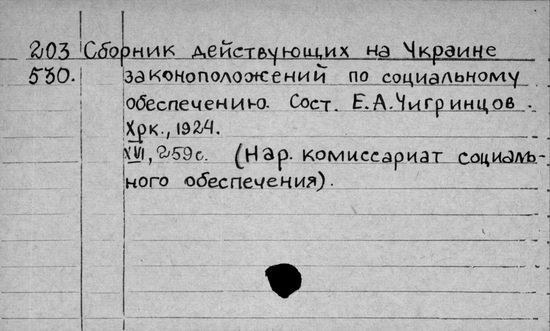 203 Сборник действующих на Украине
530. законоположений по социальному
обеспечению. Сост. Е.А.Чигринцов.
Хрк., 1924.
XVI, 259с. (Нар. комиссариат социаль-
ного обеспечения).